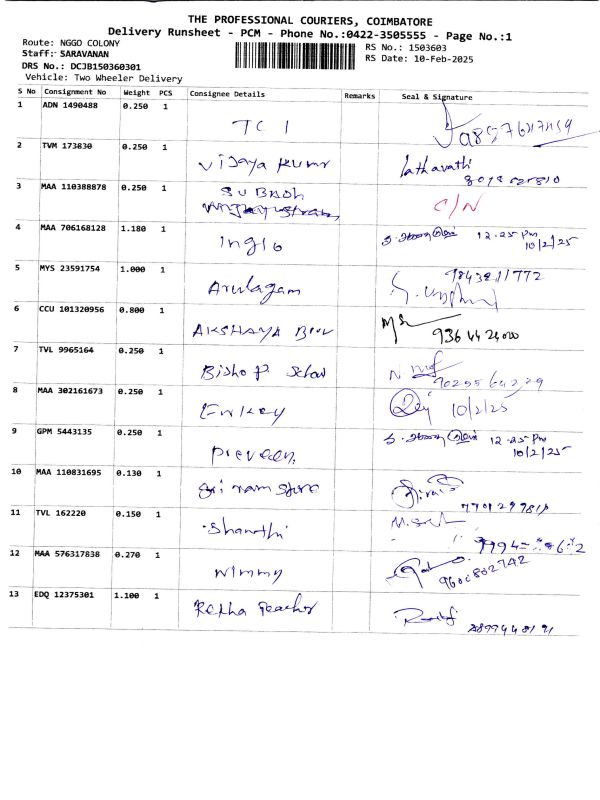 THE PROFESSIONAL COURIERS, COIMBATORE
Delivery Runsheet - PCM - Phone No.:0422-3505555 - Page No.:1
Route: NGGO COLONY
RS No.: 1503603
Staff: SARAVANAN
RS Date: 10-Feb-2025
DRS No.: DCJB150360301
Vehicle: Two Wheeler Delivery
S No Consignment No Weight PCS Consignee Details Remarks Seal & Signature
1 ADN 1490488 0.250 1
TC 1
2 TVM 173830 0.250 1
Vijaya kumr
Lathavathi
3 MAA 110388878 0.250 1
SUBASH
C/N
4 MAA 706168128 1.180 1
Inglo
12.25 Pm
10/2/25
5 MYS 23591754 1.000 1
Arulagam
9843211772
6 CCU 101320956 0.800 1
AKSHAYA
7 TVL 9965164 0.250 1
Bishop
8 MAA 302161673 0.250 1
Enkey
10/2/25
9 GPM 5443135 0.250 1
Preveen
12.25 Pm
10/2/25
10 MAA 110831695 0.130 1
Sri ram Store
11 TVL 162220 0.150 1
Shanthi
12 MAA 576317838 0.270 1
Nimmy
9600802742
13 EDQ 12375301 1.100 1
Retha Teacher